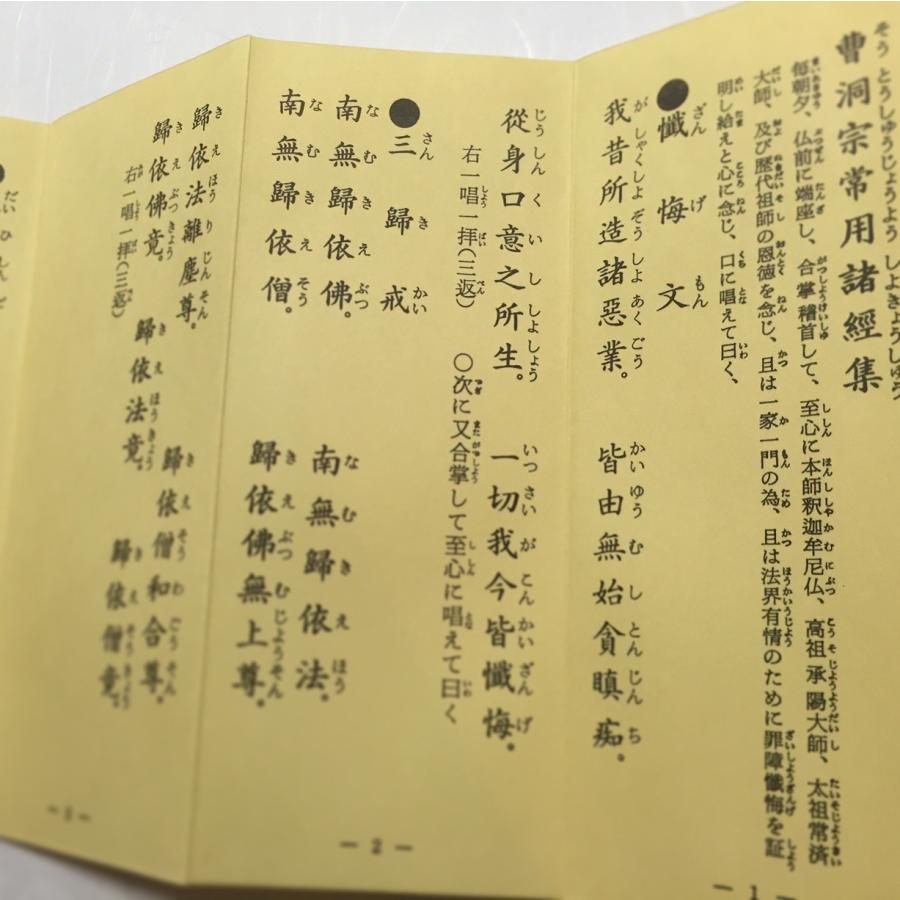 曹洞宗常用諸經集
毎朝夕、仏前に端座し、合掌稽首して、至心に本師釈迦牟尼仏、高祖承陽大師、太祖常済
大師、及び歴代祖師の恩徳を念じ、且は一家一門の為、且は法界有情のために罪障懺悔を証
明し給えと心に念じ、口に唱えて曰く、
●懺悔文
我昔所造諸惡業。 皆由無始貪瞋痴。
從身口意之所生。 一切我今皆懺悔。
右一唱一拝(三返) 〇次に又合掌して至心に唱えて曰く
●三歸戒
南無歸依佛。 南無歸依法。
南無歸依僧。 歸依佛無上尊。
歸依法離塵尊。 歸依僧和合尊。
歸依佛竟。 歸依法竟。 歸依僧竟。
右一唱一拝(三返)
— 1 —
— 2 —